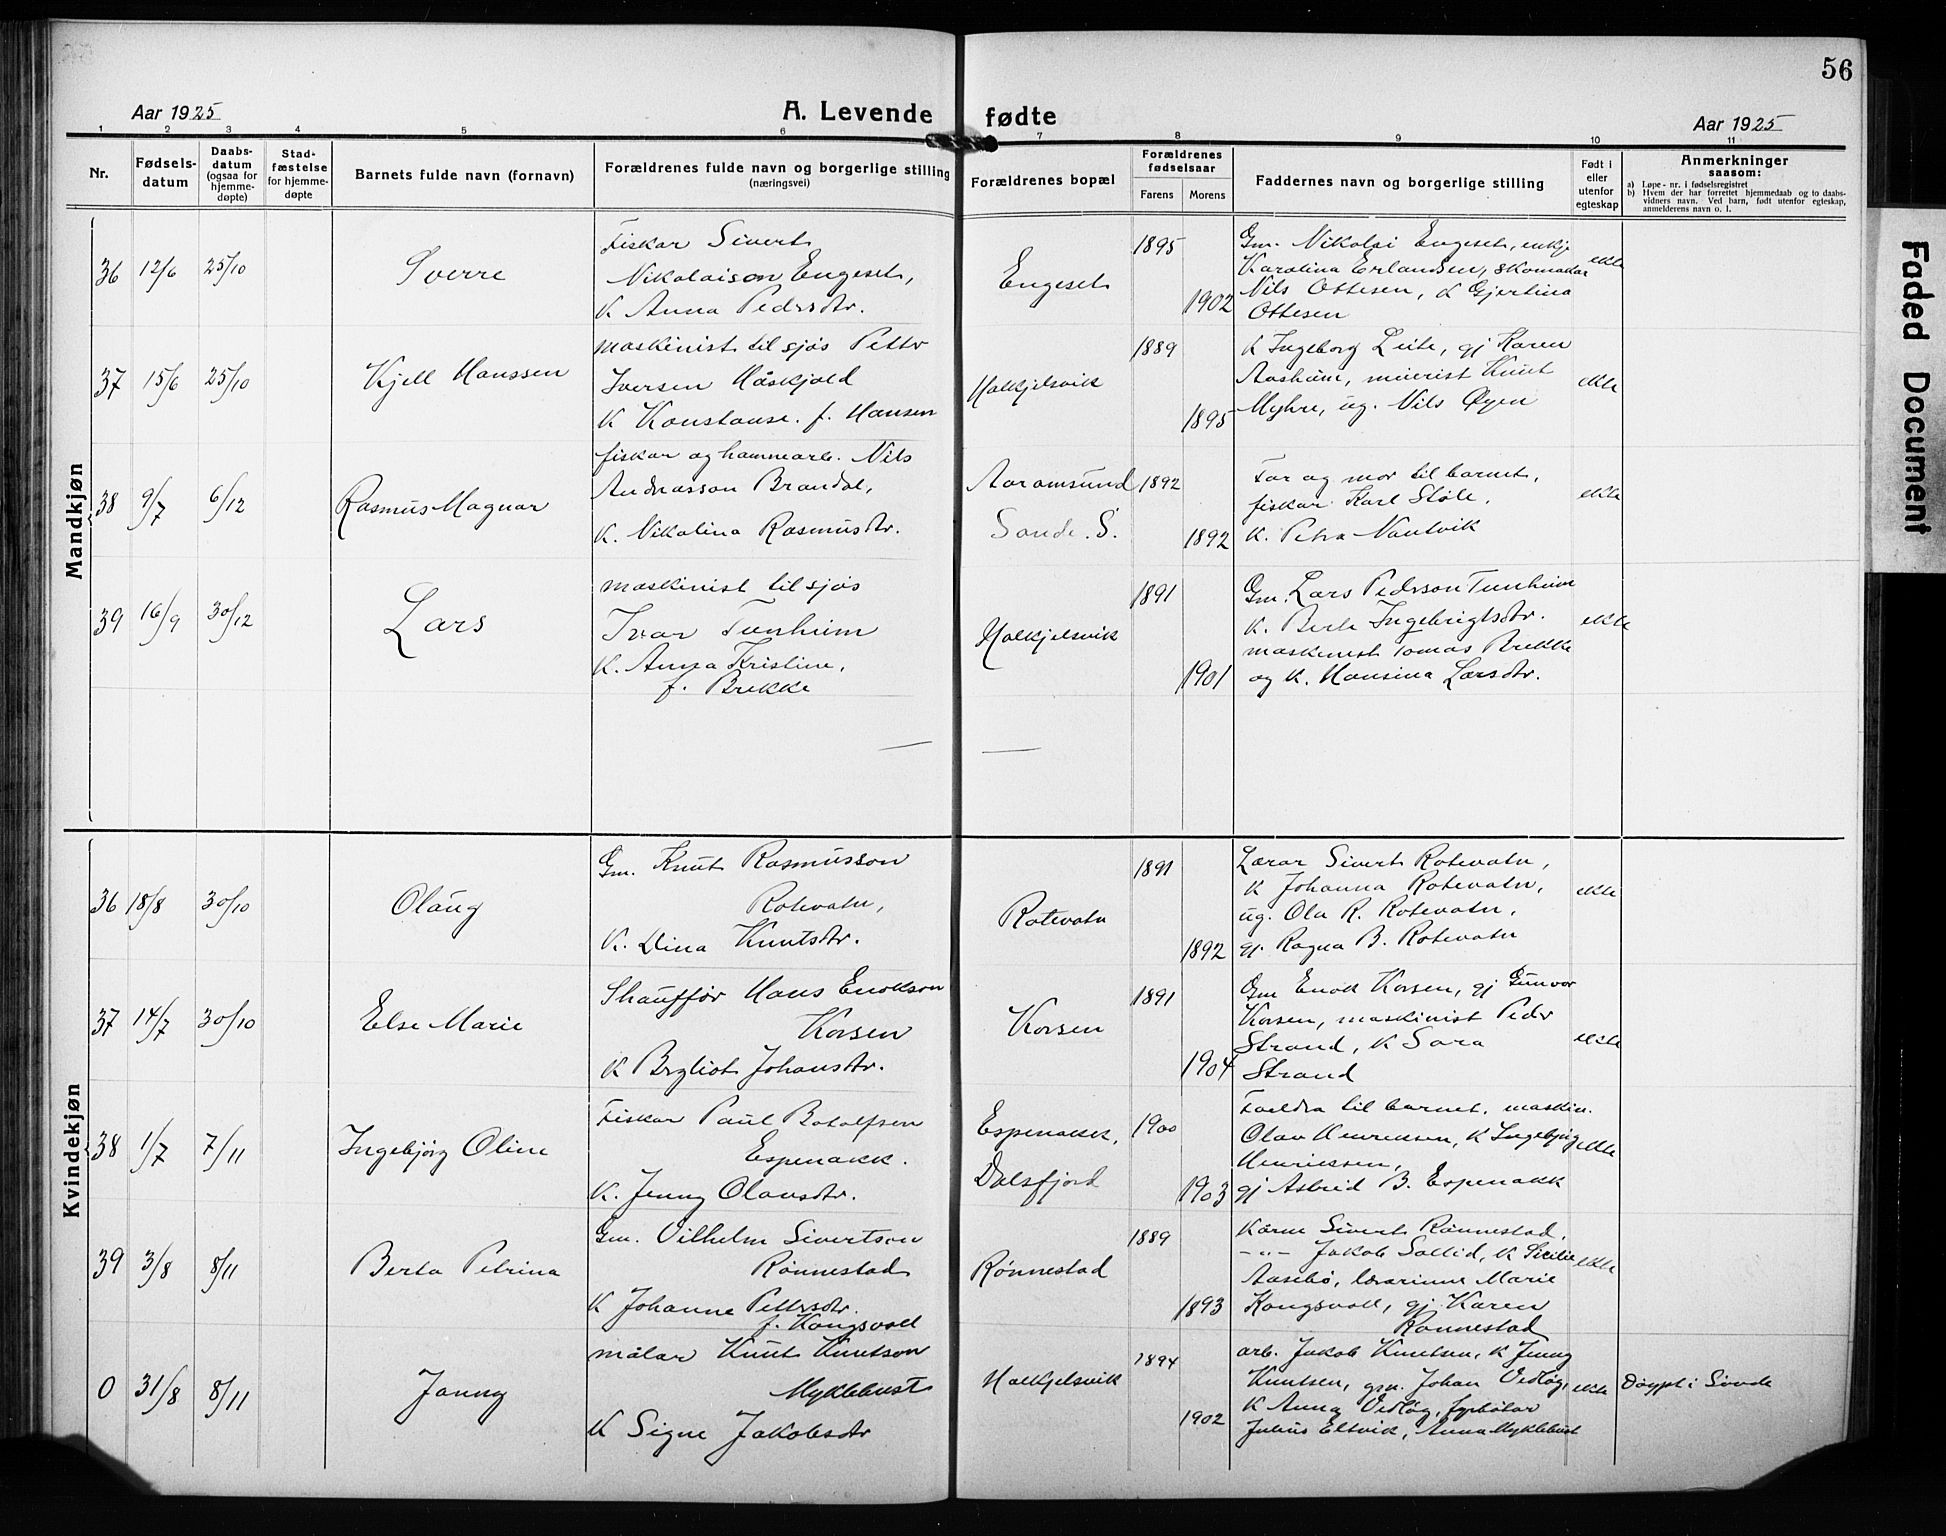 56
Aar 1925
A. Levende fødte
Aar 1925
1 2 3 4 5 6 7 8 9 10 11
Nr.
Fødsels-
datum
Daabs-
datum
(ogsaa for
hjemme-
døpte)
Stad-
fæstelse
for hjemme-
døpte
Barnets fulde navn (fornavn)
Forældrenes fulde navn og borgerlige stilling
(næringsvei)
Forældrenes bopæl
Forældrenes
fødselsaar
Farens Morens
Faddernes navn og borgerlige stilling
Født i
eller
utenfor
egteskap
Anmerkninger
saasom:
a) Løpe-nr. i fødselsregistret
b) Hvem der har forrettet hjemmedaab og to daabs-
vidners navn. Ved barn, født utenfor egteskap,
anmelderens navn o. l.
Mandkjøn
36 12/6 25/10
Sverre
Fiskar Sivert
Nikolaison Engeset,
K Anna Pedrsdtr.
Engeset
1895
1902
Gm. Nikolai Engeset, enkje
Karolina Erlandsen, skomakar
Nils Ottesen, K Gjertina
Ottesen
ekte
37 15/6 25/10
Kjell Hanssen
maskinist til sjøs Pettr
Iversen Håskjold
K Konstanse. f. Hansen
Halkjelsvik
1889
1895
K Ingeborg Leite, gj Karen
Aasheim, meierist Knut
Myhre, ug. Nils Øyen
ekte
38 9/7 6/12
Rasmus Magnar
fiskar og hammearb. Nils
Andreasson Brandal,
K. Nikolina Rasmusdtr.
Aaramsund
Sande. S.
1892
1892
Far og mor til barnet,
fiskar Karl Støle,
K. Petra Nautvik
ekte
39 16/9 30/12
Lars
maskinist til sjøs
Ivar Tunheim
K. Anna Kristine,
f. Brekke
Halkjelsvik
1891
1901
Gm. Lars Pedrsson Tunheim
K. Berte Ingebrigtsdtr.
maskinist Tomas Brekke
og K. Hansina Larsdtr.
ekte
Kvindekjøn
36 18/8 30/10
Olaug
Gm. Knut Rasmusson
Rotevatn,
K. Dina Knutsdtr.
Rotevatn
1891
1892
Lærar Sivert Rotevatn,
K Johanna Rotevatn,
ug. Ola R. Rotevatn,
gj. Ragna B. Rotevatn
ekte
37 14/7 30/10
Else Marie
Shauffør Hans Enokson
Korsen
K Bergliot Johansdtr.
Korsen
1891
1904
Gm Enok Korsen, gj Gunvor
Korsen, maskinist Pedr
Strand, K Sara
Strand
ekte
38 1/7 7/11
Ingebjørg Oline
Fiskar Paul Botolfsen
Espenakk.
K. Jenny Olausdtr.
Espenakk,
Dalsfjord
1900
1903
Foreldra til barnet. maskin.
Olav Henriksen, K Ingebjørg
Henriksen,
gj Astrid B. Espenakk
ekte
39 3/8 8/11
Berta Petrina
Gm. Vilhelm Sivertson
Rønnestad
K Johanne Pettrsdtr.
f. Kongsvoll
Rønnestad
1889
1893
Kårm Sivert Rønnestad,
-"- Jakob Sollid, K Sicilie
Aasebø, lærarinne Marie
Kongsvoll, gj. Karen
Rønnestad
ekte
0 31/8 8/11
Jenny
målar Knut Knutson
Myklebust
K Signe Jakobsdtr
Halkjelsvik
1894
1902
arb. Jakob Knutsen, K Jenny
Knutsen, gm. Johan Vedløg,
K Anna Vedløg, fyrbøtar
Julius Eltvik, Anna Myklebust
ekte
Døypt i Sande
Faded Document